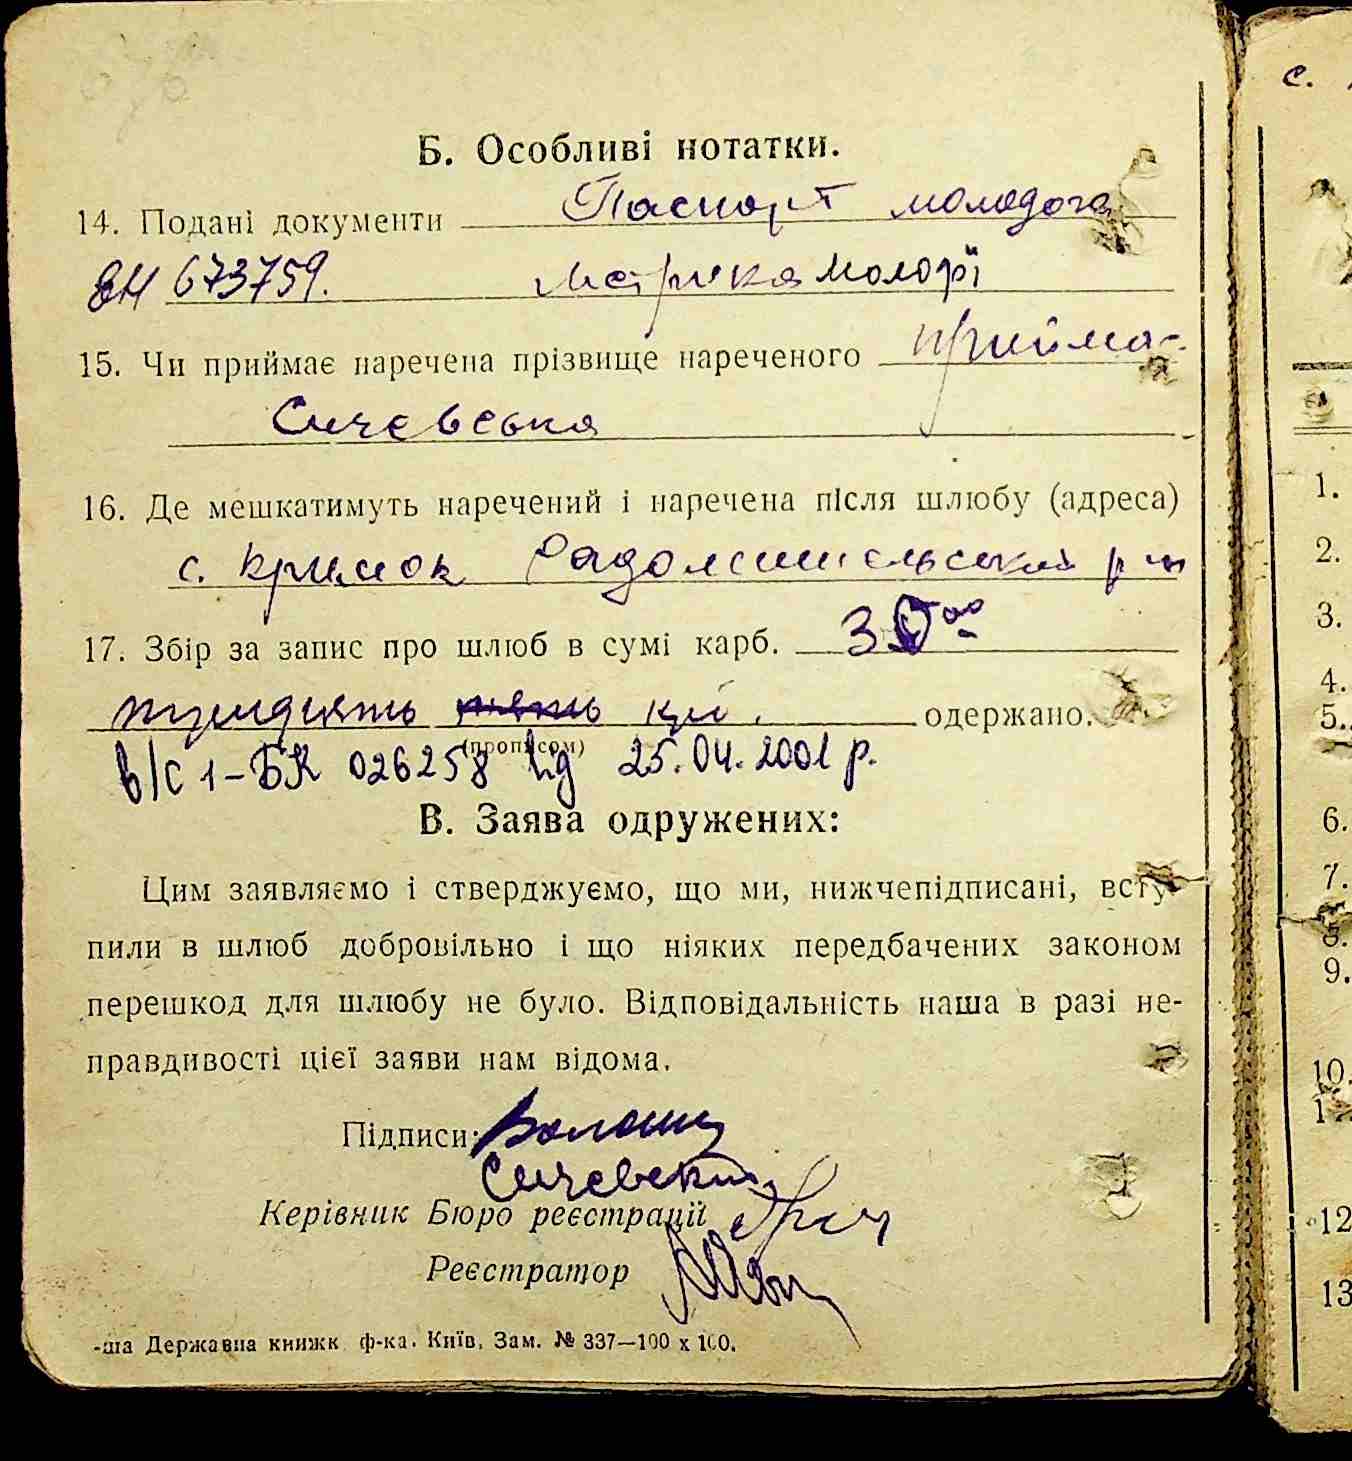 Б. Особливі нотатки.
14. Подані документи Паспорт молодого
ЕН 673759. метрика молодої
15. Чи приймає наречена прізвище нареченого прийма-
Сичевська
16. Де мешкатимуть наречений і наречена після шлюбу (адреса)
с. Кримок Радомишельський р-н
17. Збір за запис про шлюб в сумі карб. 30 00
тридцять крб. одержано.
(прописом)
в/с 1-БК 026258 від 25.04.2001 р.
В. Заява одружених:
Цим заявляємо і стверджуємо, що ми, нижчепідписані, всту-
пили в шлюб добровільно і що ніяких передбачених законом
перешкод для шлюбу не було. Відповідальність наша в разі не-
правдивості цієї заяви нам відома.
Підписи:
Сичевский
Керівник Бюро реєстрації
Реєстратор
-ша Державна книжк. ф-ка. Київ, Зам. № 337—100 х 100.
с.
1.
2.
3.
4.
5.
6.
7.
8.
9.
10.
11
12
13